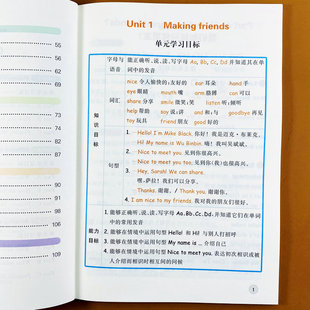 55
59
62
66
69
72
90
93
97
100
103
109
Unit 1 Making friends
单元学习目标
知识目标
字母与语音
能正确听、说、读、写字母 Aa, Bb, Cc, Dd 并知道其在单词中的发音
词汇
nice 令人愉快的;友好的 ear 耳朵 hand 手
eye 眼睛 mouth 嘴 arm 胳膊 can 可以
share 分享 smile 微笑;笑 listen 听;倾听
help 帮助 say 说;讲 and 和;与 goodbye 再见
toy 玩具 friend 朋友 good 好的
句型
1. Hello! I'm Mike Black. 你好!我是迈克·布莱克。
— Hi! My name is Wu Binbin. 嗨!我叫吴斌斌。
2. — Nice to meet you. 见到你很高兴。
— Nice to meet you too. 见到你(我)也很高兴。
3. — Hey, Sarah! We can share.
嘿,萨拉!我们可以分享。
— Thanks. 谢谢。/ Thank you. 谢谢你。
4. I am nice to my friends. 我对我的朋友们很好。
能力目标
1. 能够正确听、说、读、写字母 Aa, Bb, Cc, Dd, 并知道它们在单词中的常用发音
2. 能够在情境中运用句型 Hello! 和 Hi! 与别人打招呼
3. 能够在情境中运用句型 My name is ... 介绍自己
4. 能够在情境中运用句型 Nice to meet you. 表达初次相识或被人介绍而相识时相互间的问候
1